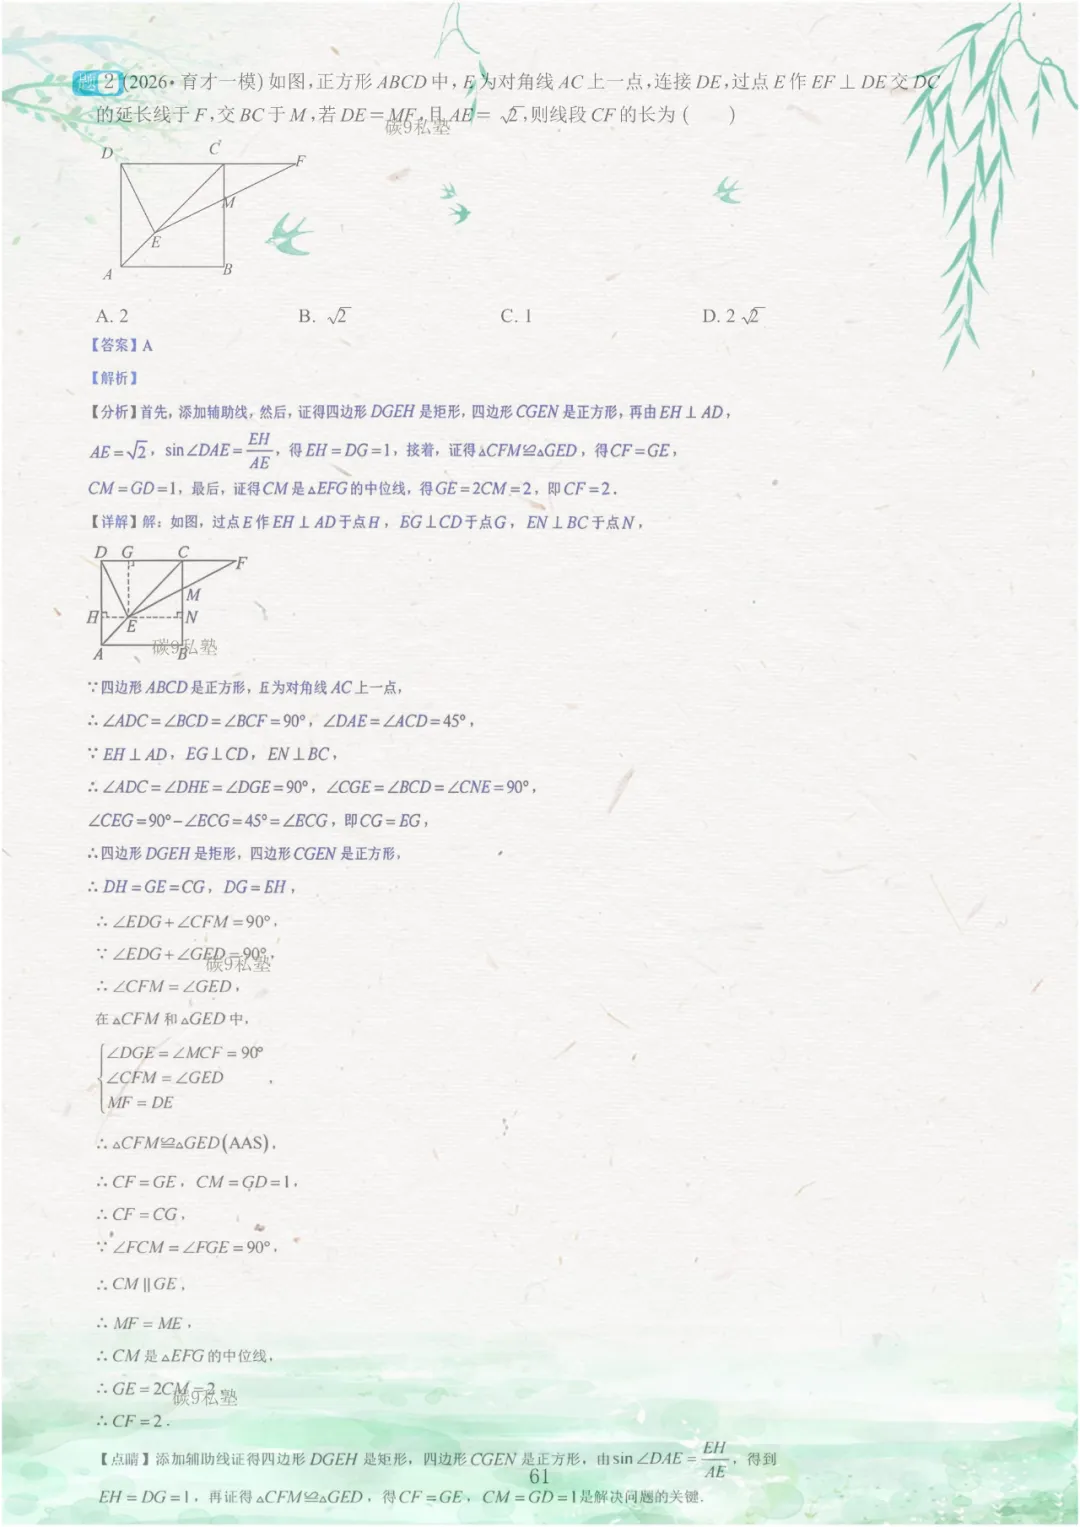 题2 (2026·育才一模)如图,正方形ABCD中,E为对角线AC上一点,连接DE,过点E作EF⊥DE交DC
的延长线于F,交BC于M,若DE=MF,且AE=√2,则线段CF的长为( )
碳9私塾
D C F
M
E
A B
A. 2 B. √2 C. 1 D. 2√2
【答案】A
【解析】
【分析】首先,添加辅助线,然后,证得四边形DGEH是矩形,四边形CGEN是正方形,再由EH⊥AD,
AE=√2,sin∠DAE=EH/AE,得EH=DG=1,接着,证得△CFM≌△GED,得CF=GE,
CM=GD=1,最后,证得CM是△EFG的中位线,得GE=2CM=2,即CF=2.
【详解】解:如图,过点E作EH⊥AD于点H,EG⊥CD于点G,EN⊥BC于点N,
D G C F
M
H E N
A B
碳9私塾
∵四边形ABCD是正方形,E为对角线AC上一点,
∴∠ADC=∠BCD=∠BCF=90°,∠DAE=∠ACD=45°,
∵EH⊥AD,EG⊥CD,EN⊥BC,
∴∠ADC=∠DHE=∠DGE=90°,∠CGE=∠BCD=∠CNE=90°,
∠CEG=90°-∠ECG=45°=∠ECG,即CG=EG,
∴四边形DGEH是矩形,四边形CGEN是正方形,
∴DH=GE=CG,DG=EH,
∴∠EDG+∠CFM=90°,
∵∠EDG+∠GED=90°,
碳9私塾
∴∠CFM=∠GED,
在△CFM和△GED中,
∠DGE=∠MCF=90°
∠CFM=∠GED ,
MF=DE
∴△CFM≌△GED(AAS),
∴CF=GE,CM=GD=1,
∴CF=CG,
∵∠FCM=∠FGE=90°,
∴CM∥GE,
∴MF=ME,
∴CM是△EFG的中位线,
∴GE=2CM=2,
碳9私塾
∴CF=2.
【点睛】添加辅助线证得四边形DGEH是矩形,四边形CGEN是正方形,由sin∠DAE=EH/AE,得到
61
EH=DG=1,再证得△CFM≌△GED,得CF=GE,CM=GD=1是解决问题的关键.